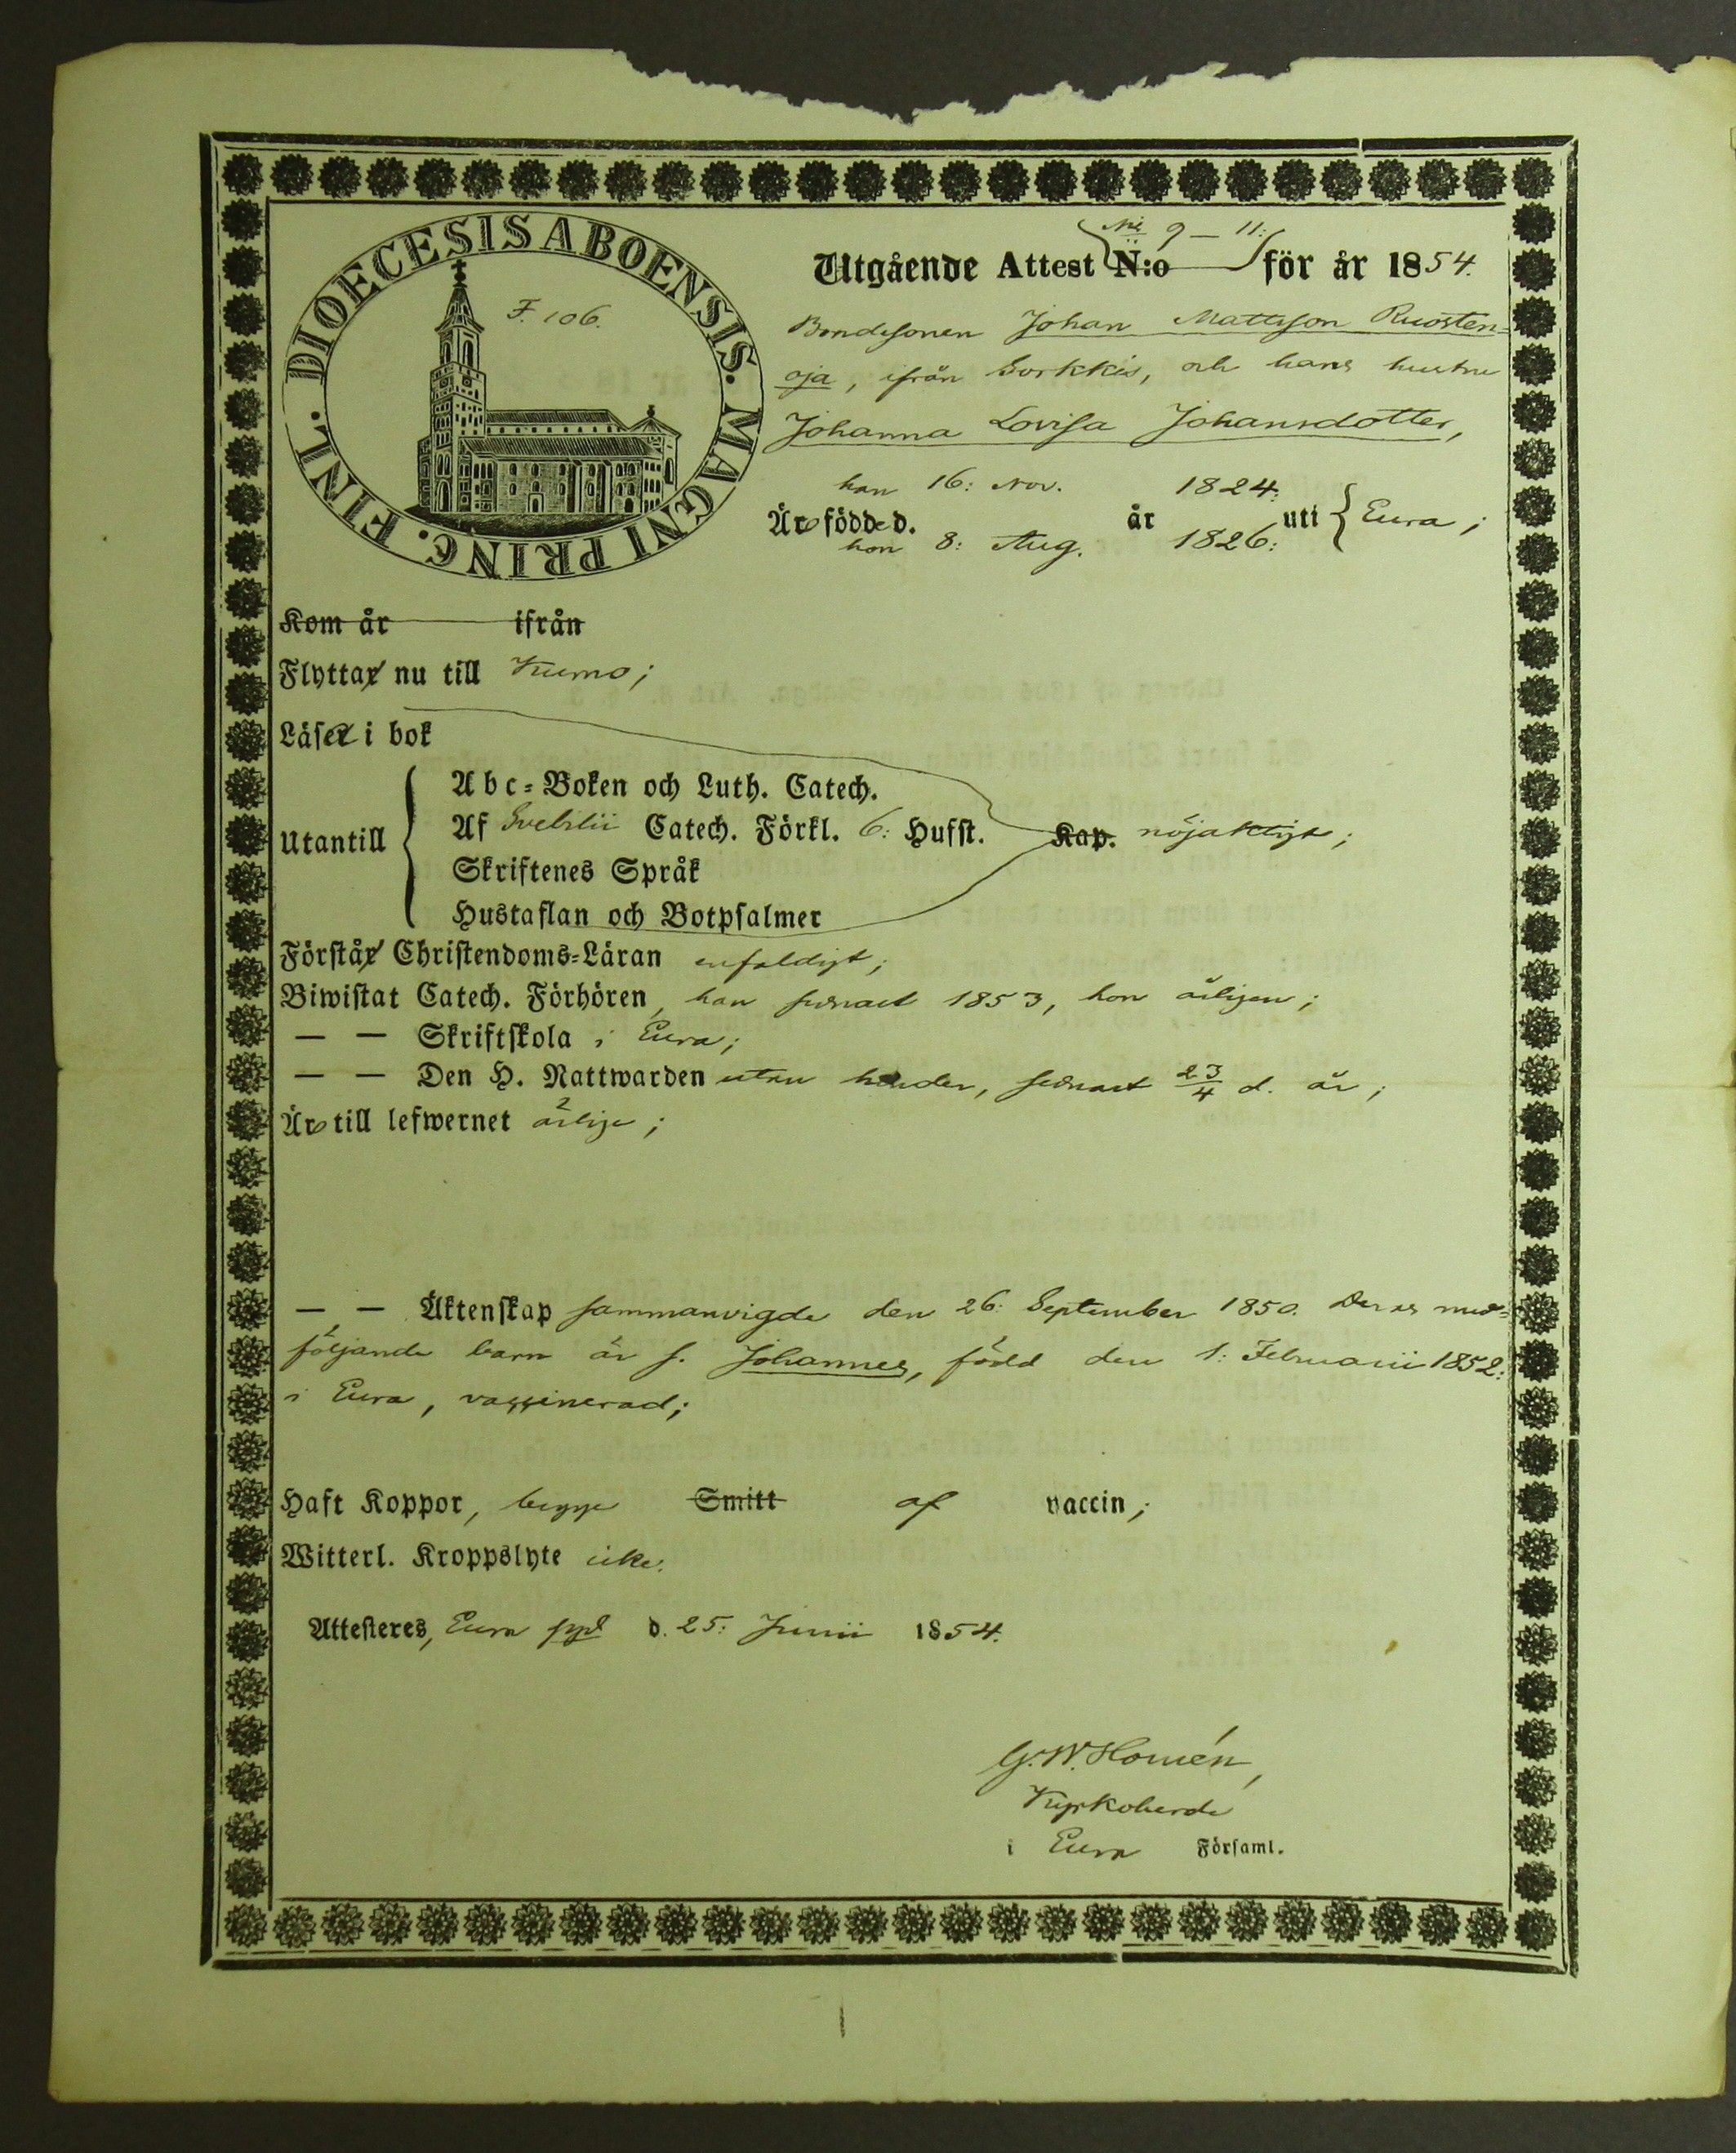 DIOECESIS ABOENSIS. MAGNI PRINC. FINL.
F. 106.
N:is 9 – 11:
Utgående Attest N:o för år 1854.
Bondesonen Johan Mattsson Ruosten-
oja, ifrån Sorkkis, och hans hustru
Johanna Lovisa Johansdotter,
han 16: Nov. 1824:
Äro födde d. år uti Eura;
hon 8: Aug. 1826:
Kom år ifrån
Flytta nu till Kumo;
Läsa i bok
Abc-Boken och Luth. Catech.
Utantill Af Svebilii Catech. Förkl. 6: Hufst. Kap. nöjaktigt;
Skriftenes Språk
Hustaflan och Botpsalmer
Förstå Christendoms-Läran enfaldigt;
Biwistat Catech. Förhören, han sednast 1853, hon årligen;
— — Skriftskola i Eura;
— — Den H. Nattwarden utan hinder, sednast 23/4 d. år;
Äro till lefwernet ärlige;
— — Äktenskap sammanvigde den 26: September 1850. Deras med-
följande barn är s. Johannes, född den 1: Februarii 1852:
i Eura, vaccinerad;
Haft Koppor, begge Smitt af vaccin;
Witterl. Kroppslyte icke.
Attesteres, Eura d. 25: Junii 1854.
G. W. Homén,
Kyrkoherde
i Eura Församl.